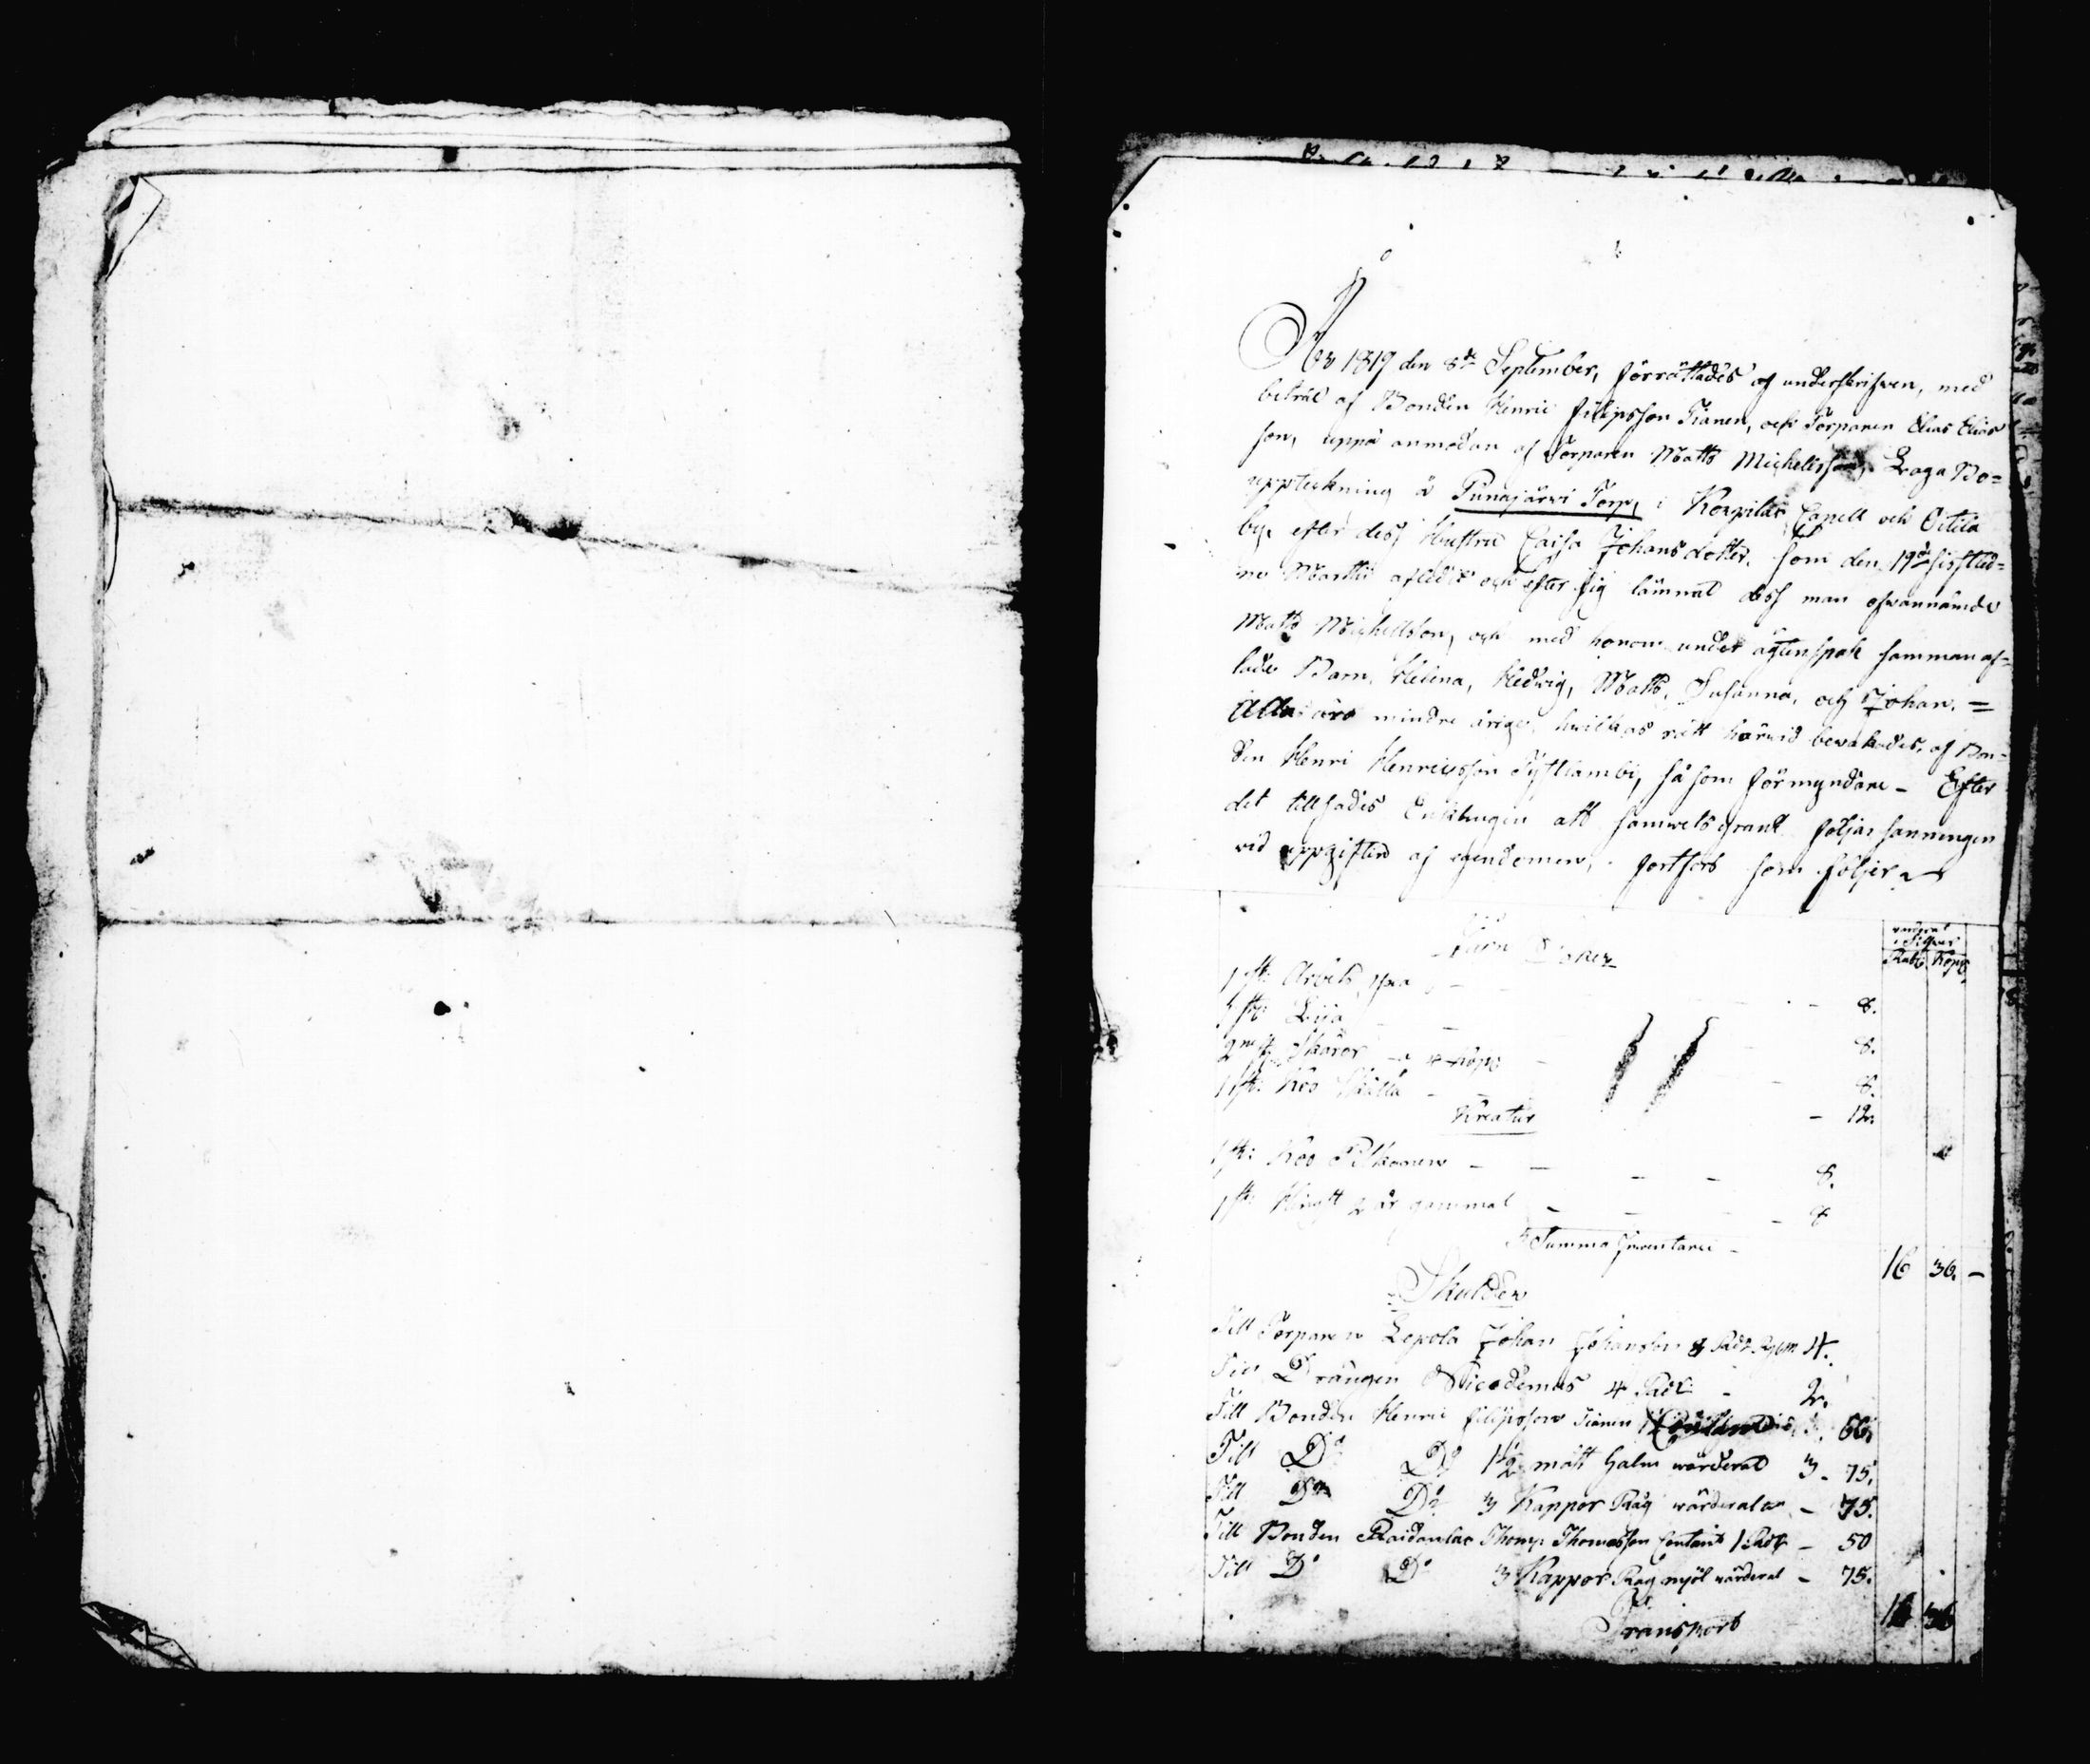 År 1819 den 8de September, förrättades af underskrifwen, med
biträde af Bonden Henric Filipsson Tianen, och Torparen Elias Elias
son, uppå anmodan af Torparen Matts Michelsson, Laga Bo=
uppteckning å Punajärwi Torp, i Korpilax Capell och Oitila
by, efter dess Hustru Caisa Johansdotter, som den 19de sistled=
ne Martii afledit och efter sig lämnat dess man ofwannämde
Matts Michellsson, och med honom under ägtenskap samman af=
lade Barn, Helena, Hedwig, Matts, Susanna, och Johan. =
Alla äro mindre årige, hwilkas rätt härwid bewakades, af Bon=
den Henri Henricsson, så som förmyndare - Efter
det tillsades Enklingen att samwetsgrant följa sanningen
vid uppgiften af egendomen, fortfors som följer
värderat
i Silfwer
Rubl Kop
Jern Saker
1 st: Arbets yxa - 8.
1 st: Lija - 8.
2ne st: Skäror a 4 kop: - 8.
1 st: Koo Skälla - 12.
Kreatur
1 st: Koo Pilkonen - 8.
1 st: Hingst 2 år gammal - 8
Summa Inventarii - 16 36. -
Skulder
Till Torparen Lepola Johan Johansson 8 Rdr 4.
Till Drängen Nicodemus 4 Rdr - 2.
Till Bonden Henric Filipsson Tianen 66.
Till Do Do 1½ mått halm wärderat 3 - 75.
Till Do Do 3 Kappor Råg wärderat a - 75.
Till Bonden Raidanlax Thom: Thomasson Contant 1 Rdr - 50
Till Do Do 3 Kappor Råg mjöl wärderat - 75.
Transport 16 36